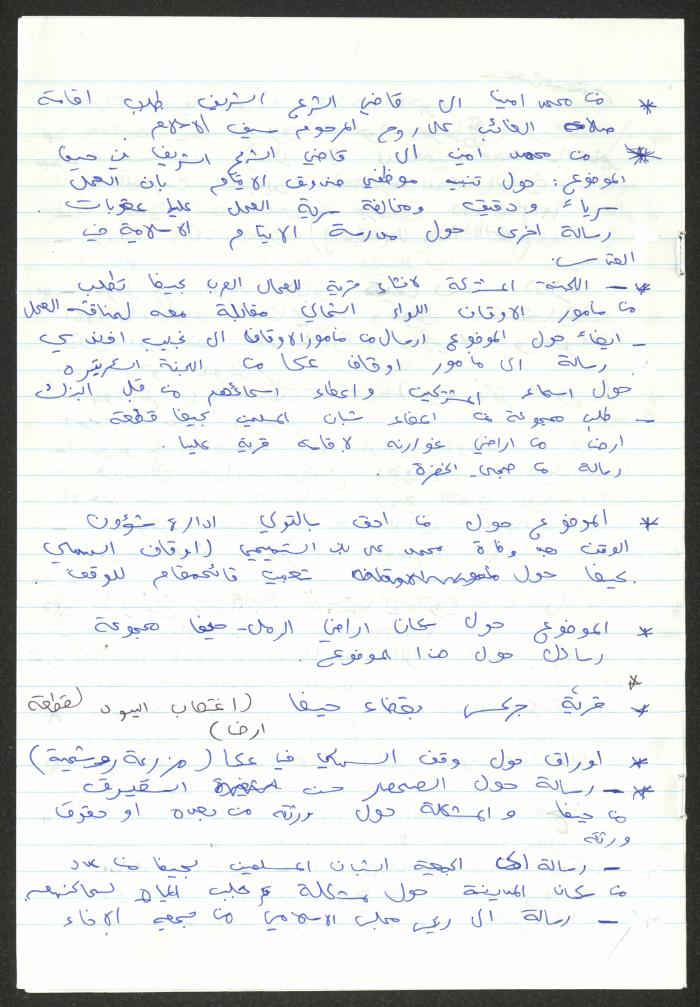 * من محمد امين الى قاضي الشرع الشريف طلب اقامة
صلاة الغائب على روح المرحوم سيف الاسلام
* من محمد امين الى قاضي الشرع الشريف في حيفا
الموضوع: حول تنبيه موظفي صندوق الايتام بان العمل
سرياً ودقيق ومخالفة سرية العمل عليها عقوبات.
رسالة اخرى حول مدرسة الايتام الاسلامية في
القدس.
* - اللجنة المشتركة لانشاء قرية للعمال العرب بحيفا تطلب
من مامور الاوقاف اللواء الشمالي مقابلة معه لمناقشة العمل
- ايضاً حول الموضوع ارسال من مامور الاوقاف الى نجيب افندي
رسالة الى مامور اوقاف عكا من اللجنة
حول اسماء المشتركين واعطاء اسمائهم من قبل البنك
- طلب مجموعة من اعضاء شبان المسلمين بحيفا قطعة
ارض من اراضي لاقامة قرية عليها.
رسالة من صبحي الخضرة.
* الموضوع حول من احق بالتولي ادارة شؤون
الوقف بعد وفاة محمد علي بك التميمي (اوقاف
بحيفا حول تعيين قائمقام للوقف.
* الموضوع حول سكان اراضي الرمل - حيفا مجموعة
رسائل حول هذا الموضوع.
*
* قرية جركس بقضاء حيفا (اغتصاب اليهود لقطعة
ارض)
* اوراق حول وقف السبكي في عكا (مزرعة
* - رسالة حول
من حيفا والمشكلة حول ورثته من بعده او حقوق
ورثة
- رسالة الى الجمعية الشبان المسلمين بحيفا من عدد
من سكان المدينة حول مشكلة جلب المياه لمساكنهم
- رسالة الى رئيس مجلس الاسلامي من جمعية الاخاء